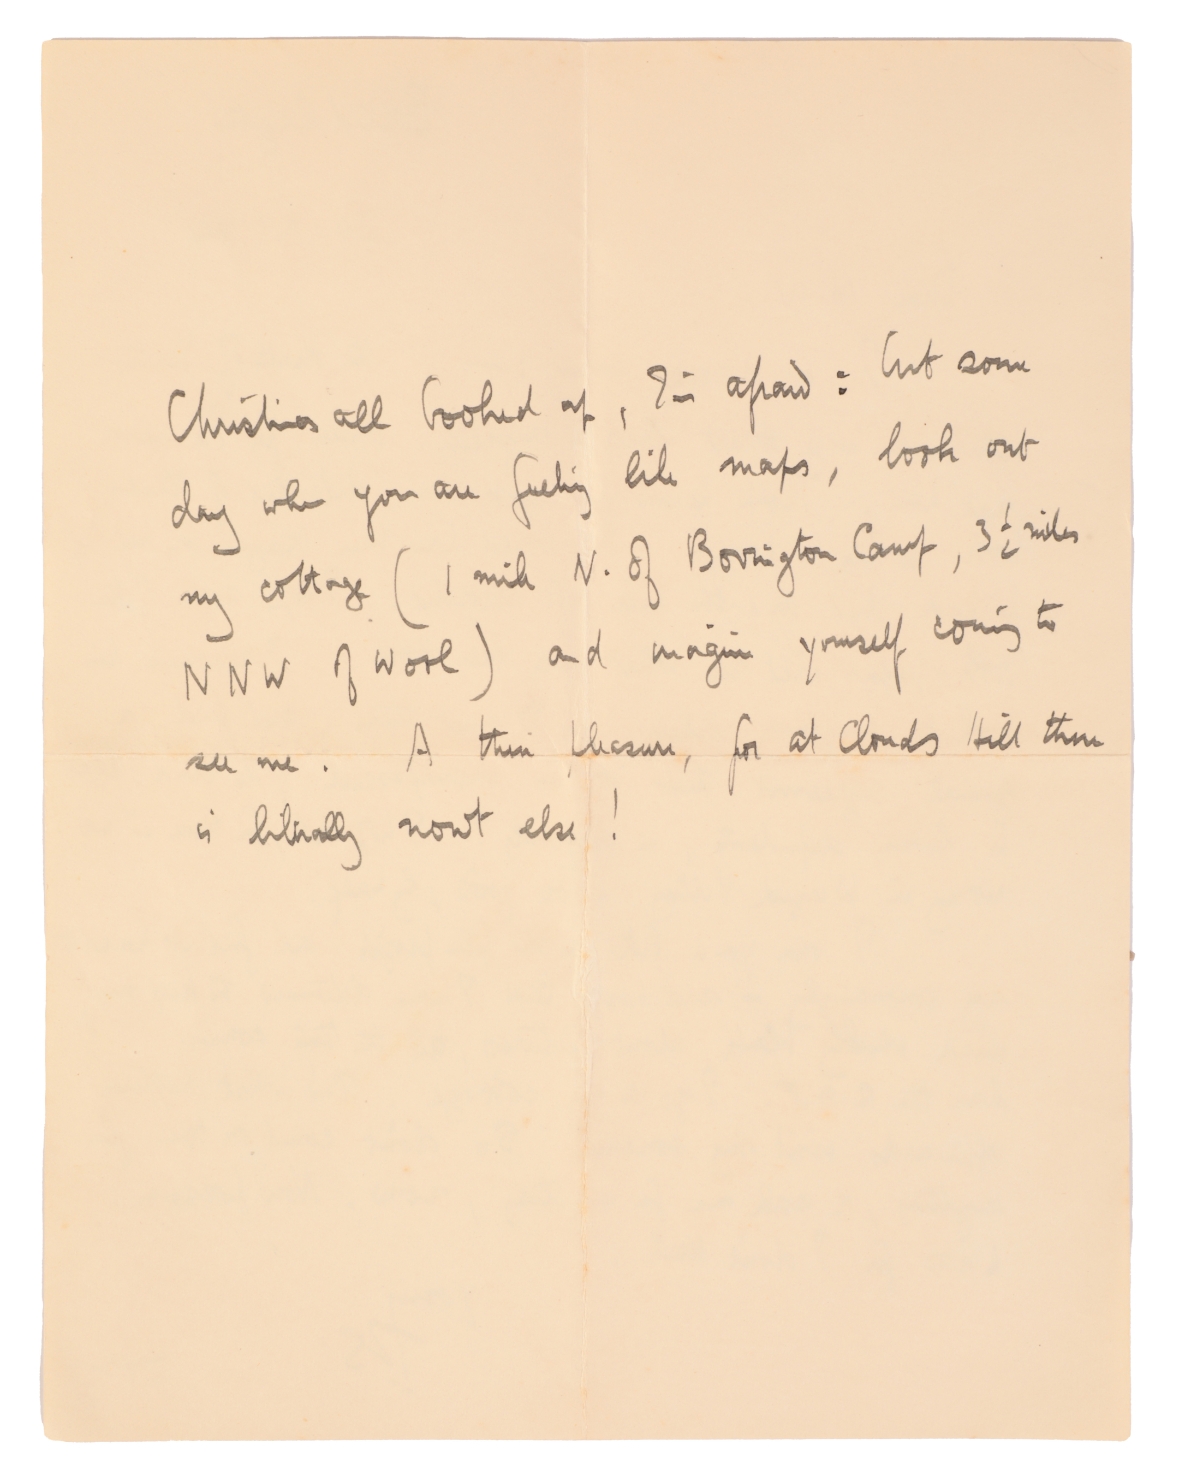 Christmas all booked up, I'm afraid: but some
day when you are feeling like maps, look out
my cottage (1 mile N. of Bovington Camp, 3½ miles
NNW of Wool) and imagine yourself coming to
see me. A thin pleasure, for at Clouds Hill there
is literally nowt else!